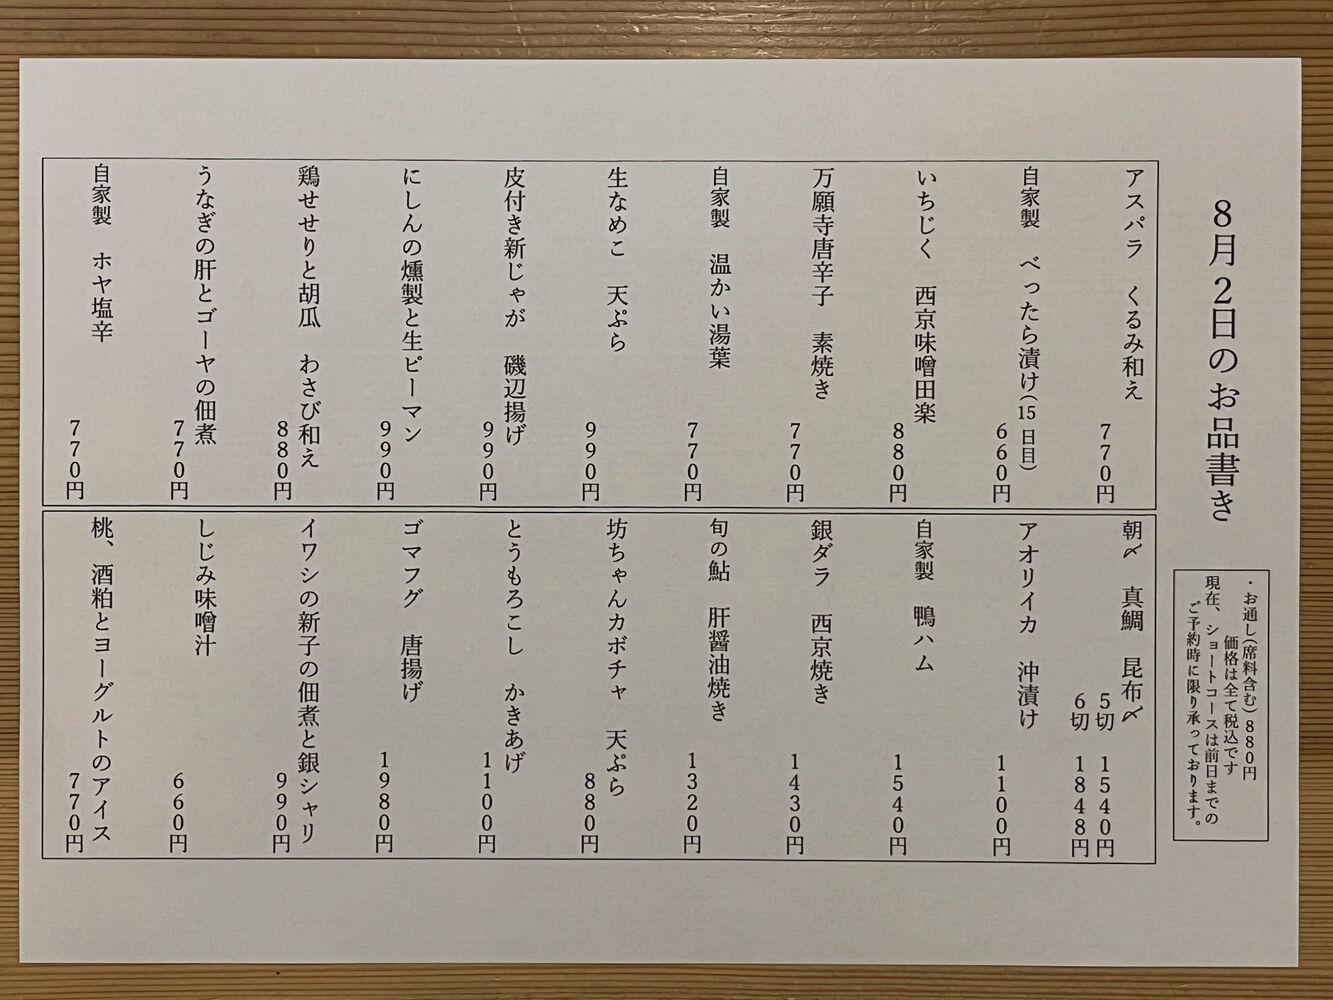 8月2日のお品書き
・お通し(席料含む)880円
価格は全て税込です
現在、ショートコースは前日までの
ご予約時に限り承っております。
アスパラ くるみ和え
770円
自家製 べったら漬け(15日目)
660円
いちじく 西京味噌田楽
880円
万願寺唐辛子 素焼き
770円
自家製 温かい湯葉
770円
生なめこ 天ぷら
990円
皮付き新じゃが 磯辺揚げ
990円
にしんの燻製と生ピーマン
990円
鶏せせりと胡瓜 わさび和え
880円
うなぎの肝とゴーヤの佃煮
770円
自家製 ホヤ塩辛
770円
朝〆 真鯛 昆布〆
5切 1540円
6切 1848円
アオリイカ 沖漬け
1100円
自家製 鴨ハム
1540円
銀ダラ 西京焼き
1430円
旬の鮎 肝醤油焼き
1320円
坊ちゃんカボチャ 天ぷら
880円
とうもろこし かきあげ
1100円
ゴマフグ 唐揚げ
1980円
イワシの新子の佃煮と銀シャリ
990円
しじみ味噌汁
660円
桃、酒粕とヨーグルトのアイス
770円